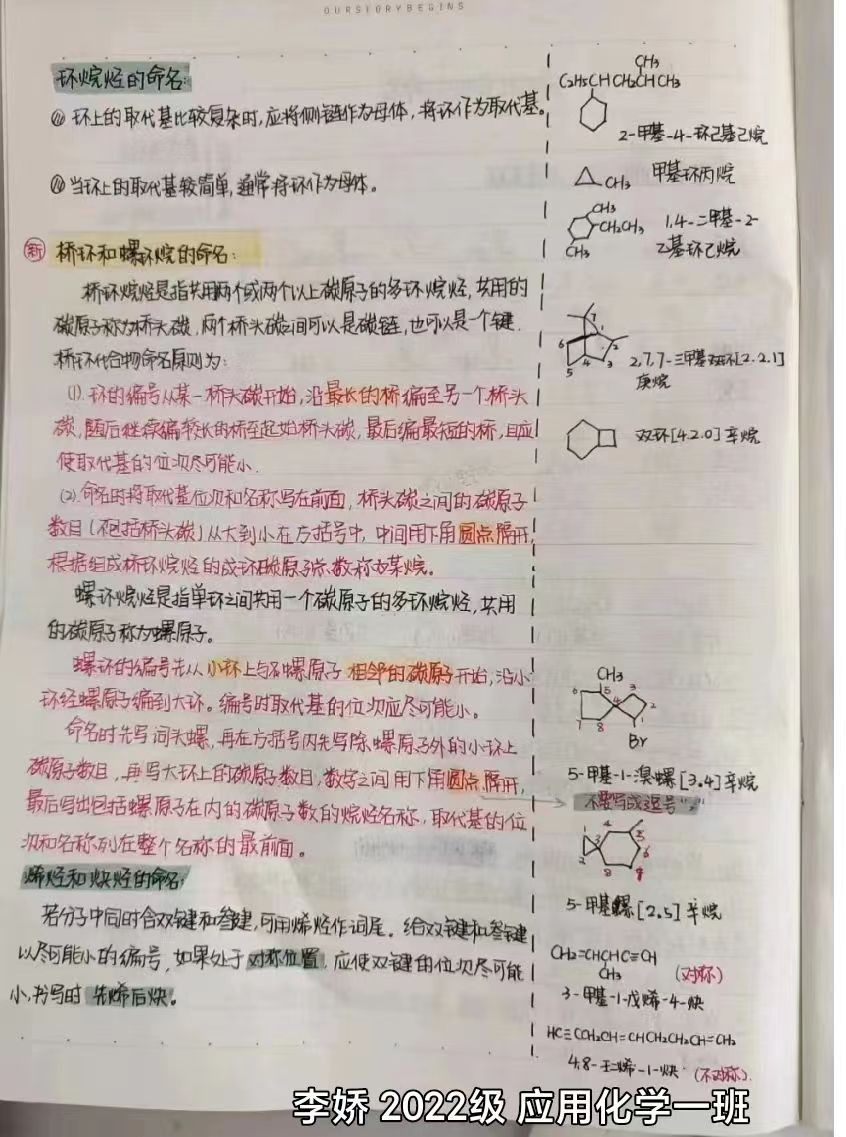 OURSTORYBEGINS
环烷烃的命名:
① 环上的取代基比较复杂时,应将侧链作为母体,将环作为取代基。
② 当环上的取代基较简单,通常将环作为母体。
新 桥环和螺环烷的命名:
桥环烷烃是指共用两个或两个以上碳原子的多环烷烃,共用的
碳原子称为桥头碳,两个桥头碳间可以是碳链,也可以是一个键.
桥环化合物命名原则为:
(1).环的编号从某一桥头碳开始,沿最长的桥编至另一个桥头
碳,随后继续编较长的桥至起始桥头碳,最后编最短的桥,且应
使取代基的位次尽可能小.
(2).命名时将取代基位次和名称写在前面,桥头碳之间的碳原子
数目(不包括桥头碳)从大到小在方括号中,中间用下角圆点隔开,
根据组成桥环烷烃的成环碳原子总数称为某烷。
螺环烷烃是指单环之间共用一个碳原子的多环烷烃,共用
的碳原子称为螺原子。
螺环的编号先从小环上与螺原子相邻的碳原子开始,沿小
环经螺原子编到大环。编号时取代基的位次应尽可能小。
命名时先写词头螺,再在方括号内先写除螺原子外的小环上
碳原子数目,再写大环上的碳原子数目,数字之间用下角圆点隔开,
最后写出包括螺原子在内的碳原子数的烷烃名称,取代基的位
次和名称列在整个名称的最前面。
烯烃和炔烃的命名:
若分子中同时含双键和叁键,可用烯烃作词尾。给双键和叁键
以尽可能小的编号,如果处于对称位置,应使双键的位次尽可能
小,书写时先烯后炔。
CH3
C2H5CHCH2CHCH3
2-甲基-4-环己基己烷
CH3 甲基环丙烷
CH3
CH2CH3
CH3
1,4-二甲基-2-
乙基环己烷
7
1
6 2
5 4 3
2,7,7-三甲基双环[2.2.1]
庚烷
双环[4.2.0]辛烷
CH3
6 5 3
4 2
7 8 1
Br
5-甲基-1-溴螺[3.4]辛烷
不要写成逗号","
4
1 3 5
2 6
8 7
5-甲基螺[2.5]辛烷
CH2=CHCHC≡CH
CH3 (对称)
3-甲基-1-戊烯-4-炔
HC≡CCH2CH=CHCH2CH2CH=CH2
4,8-壬二烯-1-炔 (不对称).
李娇 2022级 应用化学一班